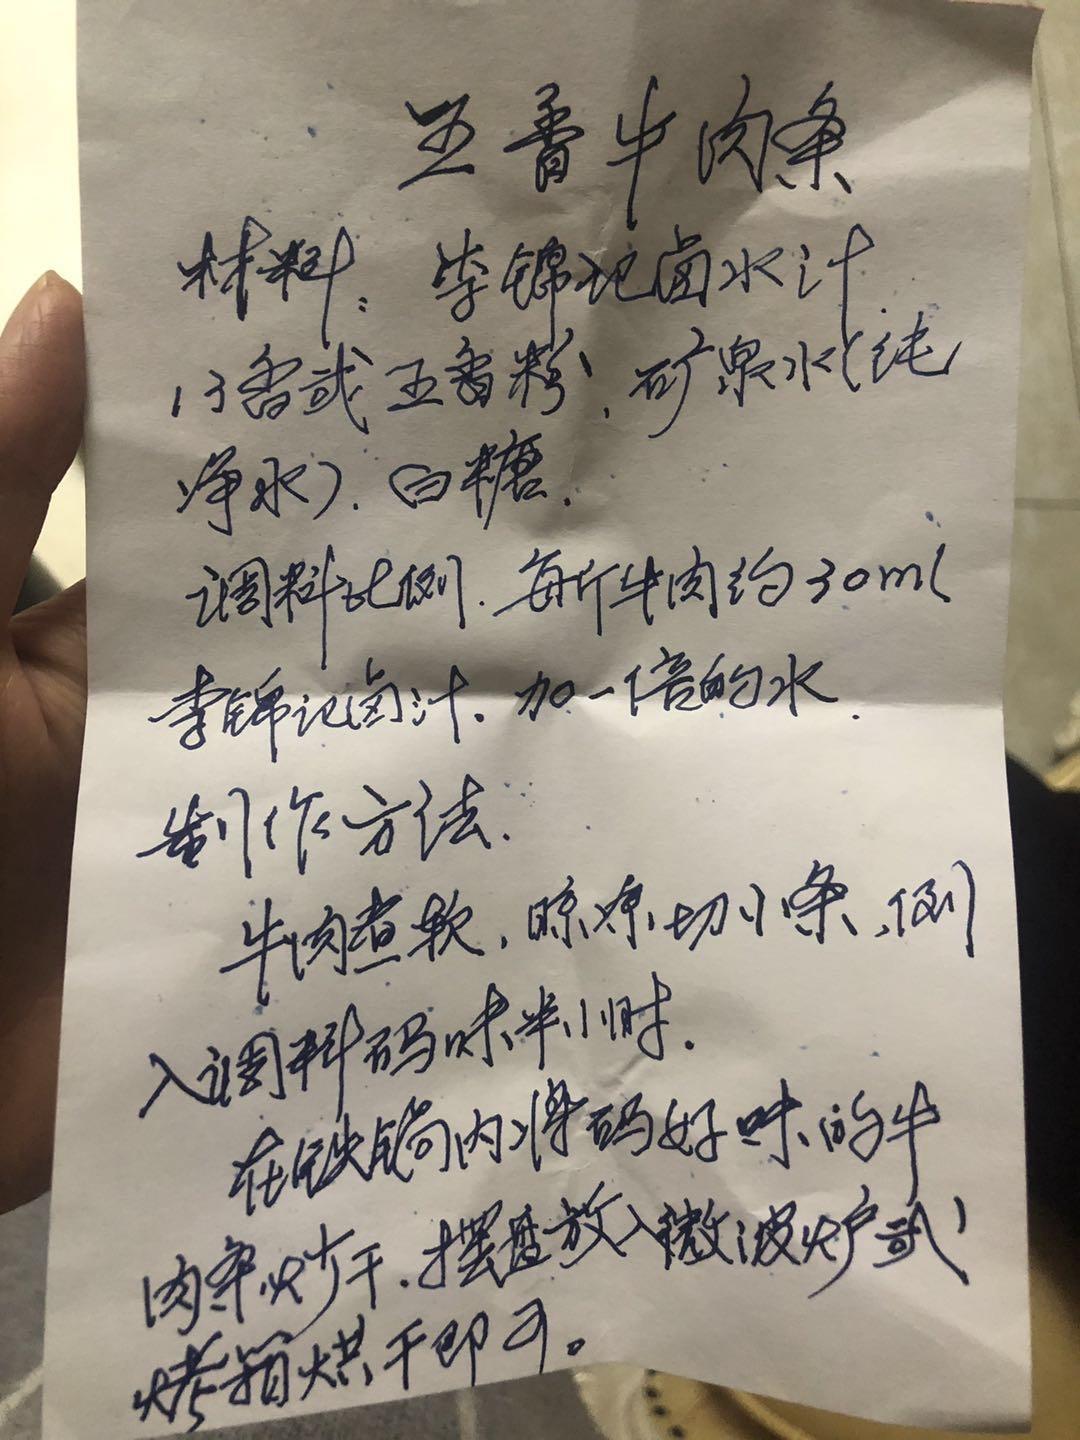 五香牛肉条
材料：李锦记卤水汁
13香或五香粉、矿泉水(纯
净水)、白糖.
调料比例.每斤牛肉约30ml
李锦记卤汁.加一倍的水.
制作方法.
牛肉煮软,晾凉切小条,倒
入调料码味半小时.
在铁锅内将码好味的牛
肉条炒干.摆盘放入微波炉或
烤箱烘干即可。